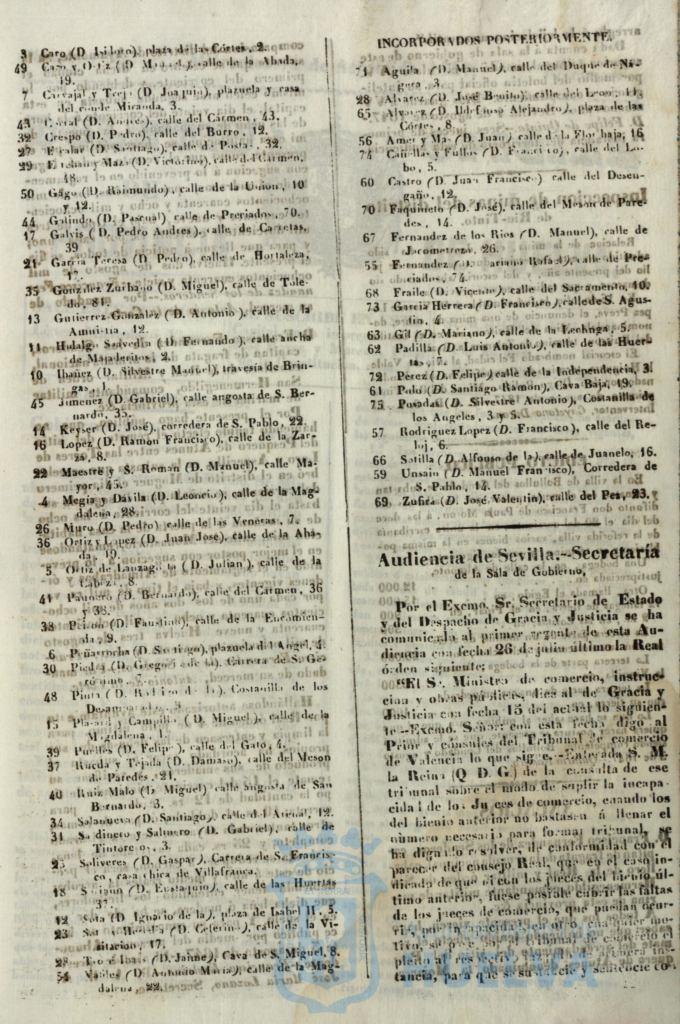 3 Caro (D. Isidoro), plaza de las Córtes, 2.
49 Caro y Ortiz (D. Manuel), calle de la Abada,
19.
7 Carvajal y Trejo (D. Joaquin), plazuela y casa
del conde Miranda, 3.
43 Corral (D. Andres), calle del Carmen, 43.
32 Crespo (D. Pedro), calle del Burro, 12.
27 Escalar (D. Santiago), calle de Postas, 32.
29 Esteban y Mazo (D. Victorino), calle del Carmen,
48.
50 Gago (D. Raimundo), calle de la Union, 10
y 12.
44 Galindo (D. Pascual) calle de Preciados, 70.
17 Galvis (D. Pedro Andres), calle de Carretas,
39
21 Garcia Teresa (D. Pedro), calle de Hortaleza,
35 Gonzalez Zurbano (D. Miguel), calle de Tole-
do, 81.
13 Gutierrez Gonzalez (D. Antonio), calle de la
Amnistia, 12.
11 Hidalgo Saavedra (D. Fernando), calle ancha
de Majaderitos, 2.
10 Ibañez (D. Silvestre Manuel), travesia de Brin-
gas, 1.
45 Jimenez (D. Gabriel), calle angosta de S. Ber-
nardo, 35.
14 Keyser (D. José), corredera de S. Pablo, 22.
16 Lopez (D. Ramon Francisco), calle de la Zar-
za, 8.
22 Maestre y S. Roman (D. Manuel), calle Ma-
yor, 45.
4 Megia y Dávila (D. Leoncio), calle de la Mag-
dalena, 28.
26 Muro (D. Pedro) calle de las Veneras, 7.
36 Ortiz y Lopez (D. Juan José), calle de la Aba-
da, 19.
5 Ortiz de Lanzagorta (D. Julian), calle de la
Cabeza, 8.
41 Paunero (D. Bernardo), calle del Carmen, 36
y 38.
38 Peiron (D. Faustino), calle de la Encomien-
da, 9.
6 Peñarrocha (D. Santiago), plazuela del Angel, 4.
30 Piedra (D. Gregorio de la), Carrera de S. Ge-
rónimo,
48 Pinta (D. de la), Costanilla de los
Desamparados,
15 y Campillo (D. Miguel), calle de la
Magdalena, 1.
39 Puelles (D. Felipe), calle del Gato, 4.
37 Rueda y Tejada (D. Damaso), calle del Meson
de Paredes, 21.
40 Ruiz Malo (D. Miguel) calle angosta de San
Bernardo, 3.
34 Salanueva (D. Santiago), calle del Arenal, 12.
31 y Salmero (D. Gabriel), calle de
Tintoreros, 3.
25 Soliveres (D. Gaspar), Carrera de S. Francis-
co, casa chica de Villafranca.
18 (D. Eustaquio), calle de las Huertas
37.
12 Sota (D. Ignacio de la), plaza de Isabel II, 5.
23 (D. Celerino), calle de la Vi-
sitacion, 17.
28 (D. Jaime), Cava de S. Miguel, 8.
54 Valdes (D. Antonio Maria), calle de la Mag-
dalena, 22.
INCORPORADOS POSTERIORMENTE.
71 Aguila (D. Manuel), calle del Duque de Ná-
gera, 3.
28 Alvarez (D. José Benito), calle del Leon, 11.
65 Alvarez (D. Ildefonso Alejandro), plaza de las
Córtes, 8.
56 Amer y Mas (D. Juan) calle de la Flor baja, 16
74 Cañellas y Fullos (D. Francisco), calle del Lo-
bo, 5.
60 Castro (D. Juan Francisco) calle del Desen-
gaño, 12.
70 Faquineto (D. José), calle del Meson de Pare-
des, 14.
67 Fernandez de los Rios (D. Manuel), calle de
Jacometrezo, 26.
55 Fernandez (D. Mariano Rafael), calle de Pre-
ciados, 74.
68 Fraile (D. Vicente), calle del Sacramento, 10.
73 Garcia Herrera (D. Francisco), calle de S. Agus-
tin, 4.
63 Gil (D. Mariano), calle de la Lechuga, 5.
62 Padilla (D. Luis Antonio), calle de las Huer-
tas, 7.
72 Perez (D. Felipe) calle de la Independencia, 3.
61 Polo (D. Santiago Ramon), Cava Baja, 19.
75 Posadas (D. Silvestre Antonio), Costanilla de
los Angeles, 3 y 5.
57 Rodriguez Lopez (D. Francisco), calle del Re-
loj, 6.
66 Satilla (D. Alfonso de la), calle de Juanelo, 16.
59 Unsain (D. Manuel Francisco), Corredera de
S. Pablo, 14.
69 Zufira (D. José Valentin), calle del Pez, 23.
Audiencia de Sevilla.--Secretaría
de la Sala de Gobierno.
Por el Excmo. Sr. Secretario de Estado
y del Despacho de Gracia y Justicia se ha
comunicado al primer regente de esta Au-
diencia con fecha 26 de julio último la Real
órden siguiente:
"El Sr. Ministro de comercio, instruc-
cion y obras públicas, dice al de Gracia y
Justicia con fecha 15 del actual lo siguien-
te.--Excmo. Señor: con esta fecha digo al
Prior y cónsules del Tribunal de comercio
de Valencia lo que sigue.--Enterada S. M.
la Reina (Q. D. G.) de la consulta de ese
tribunal sobre el modo de suplir la incapa-
cidad de los Jueces de comercio, cuando los
del bienio anterior no bastasen á llenar el
número necesario para formar tribunal, se
ha dignado resolver, de conformidad con el
parecer del consejo Real, que en el caso in-
dicado de que ni con los jueces del bienio úl-
timo anterior, fuese posible cubrir las faltas
de los jueces de comercio, que puedan ocur-
rir, por incapacidad, en otro cualquier mo-
tivo, se pase por el tribunal de comercio el
pleito al respectivo de primera ins-
tancia, para que se sustancie y sentencie co-